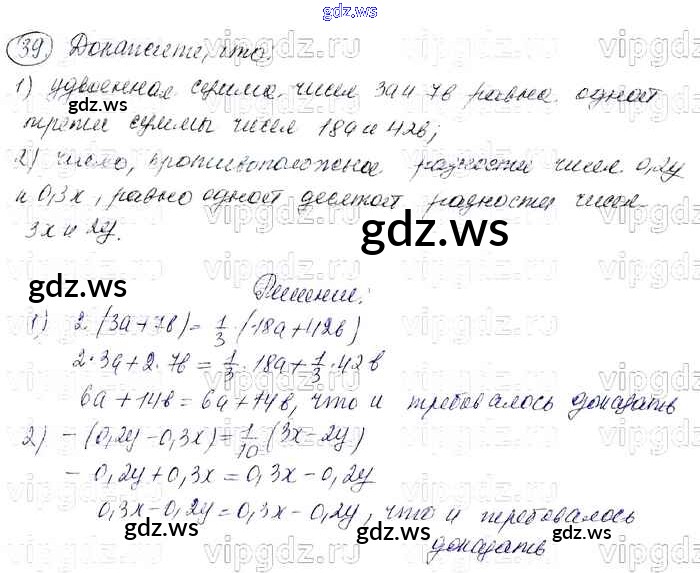 gdz.ws
39) Докажите, что:
1) удвоенная сумма чисел 3a и 7b равна одной
трети суммы чисел 18a и 42b;
2) число, противоположное разности чисел 0,2y
и 0,3x, равно одной десятой разности чисел
3x и 2y.
gdz.ws
gdz.ws
Решение:
1) 2·(3a+7b)=1/3·(18a+42b)
2·3a+2·7b=1/3·18a+1/3·42b
6a+14b=6a+14b, что и требовалось доказать
2) -(0,2y-0,3x)=1/10(3x-2y)
-0,2y+0,3x=0,3x-0,2y
0,3x-0,2y=0,3x-0,2y, что и требовалось
доказать
gdz.ws
gdz.ws